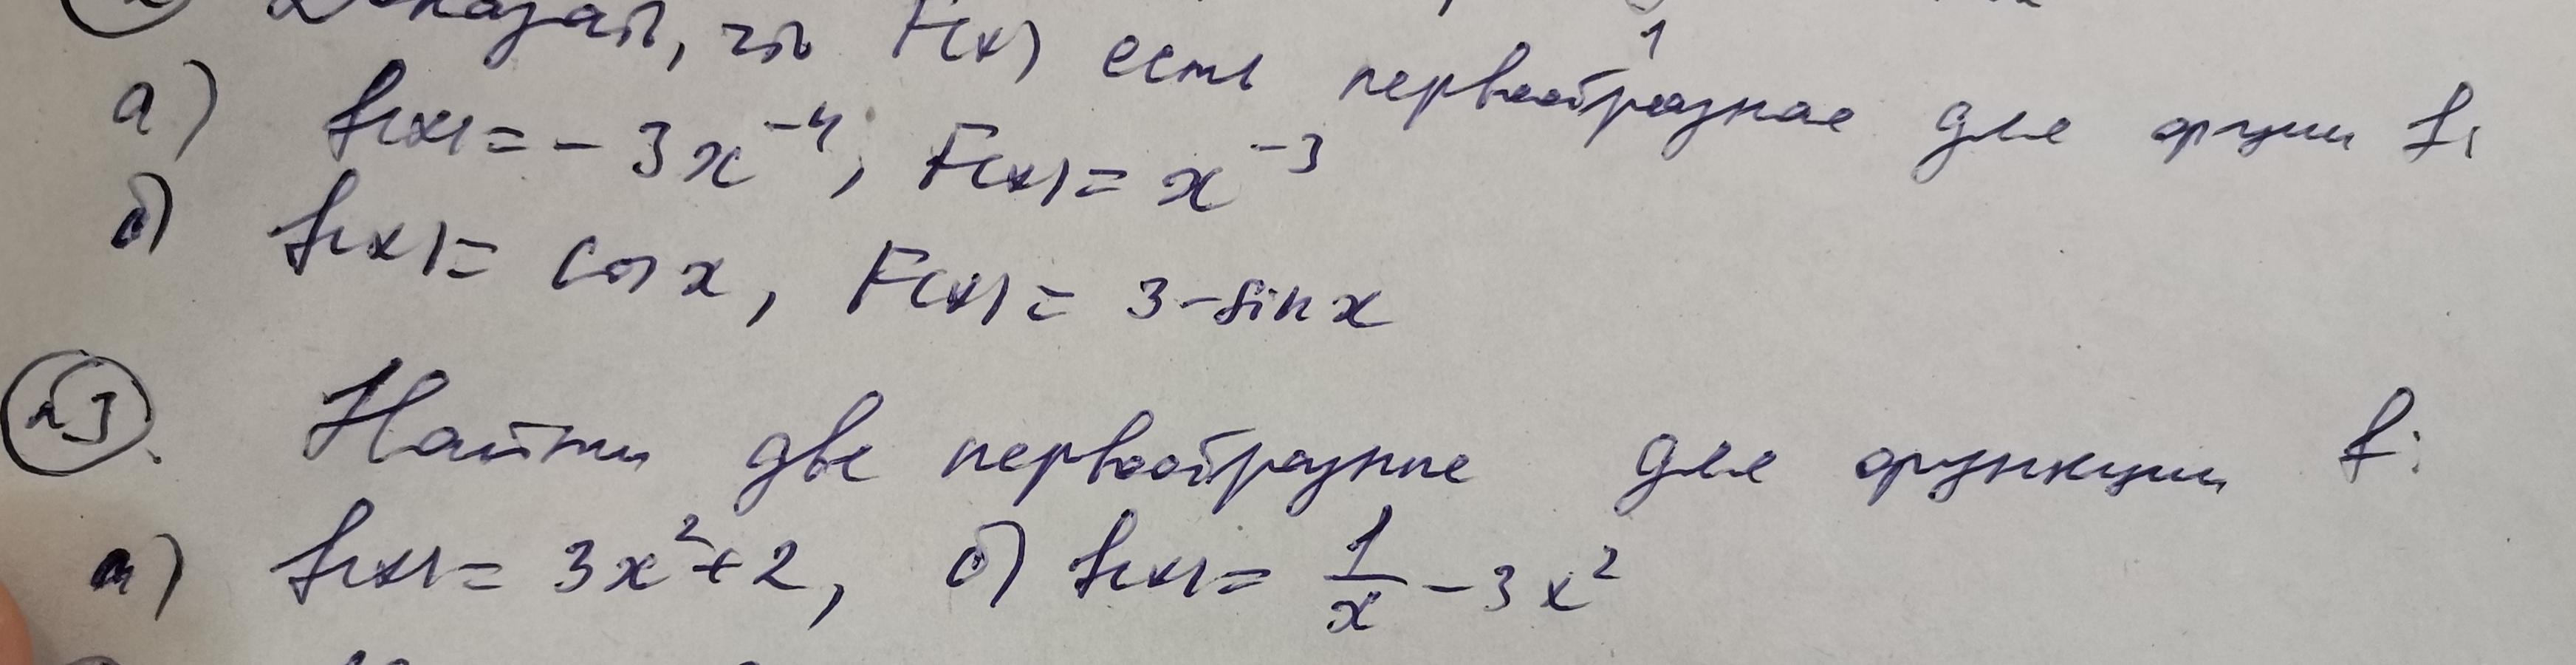 Доказать, что F(x) есть первообразная для функции f:
а) f(x) = -3x⁻⁴, F(x) = x⁻³
б) f(x) = cos x, F(x) = 3-sin x
№3. Найти две первообразные для функции f:
а) f(x) = 3x²+2, б) f(x) = 1/x - 3x²